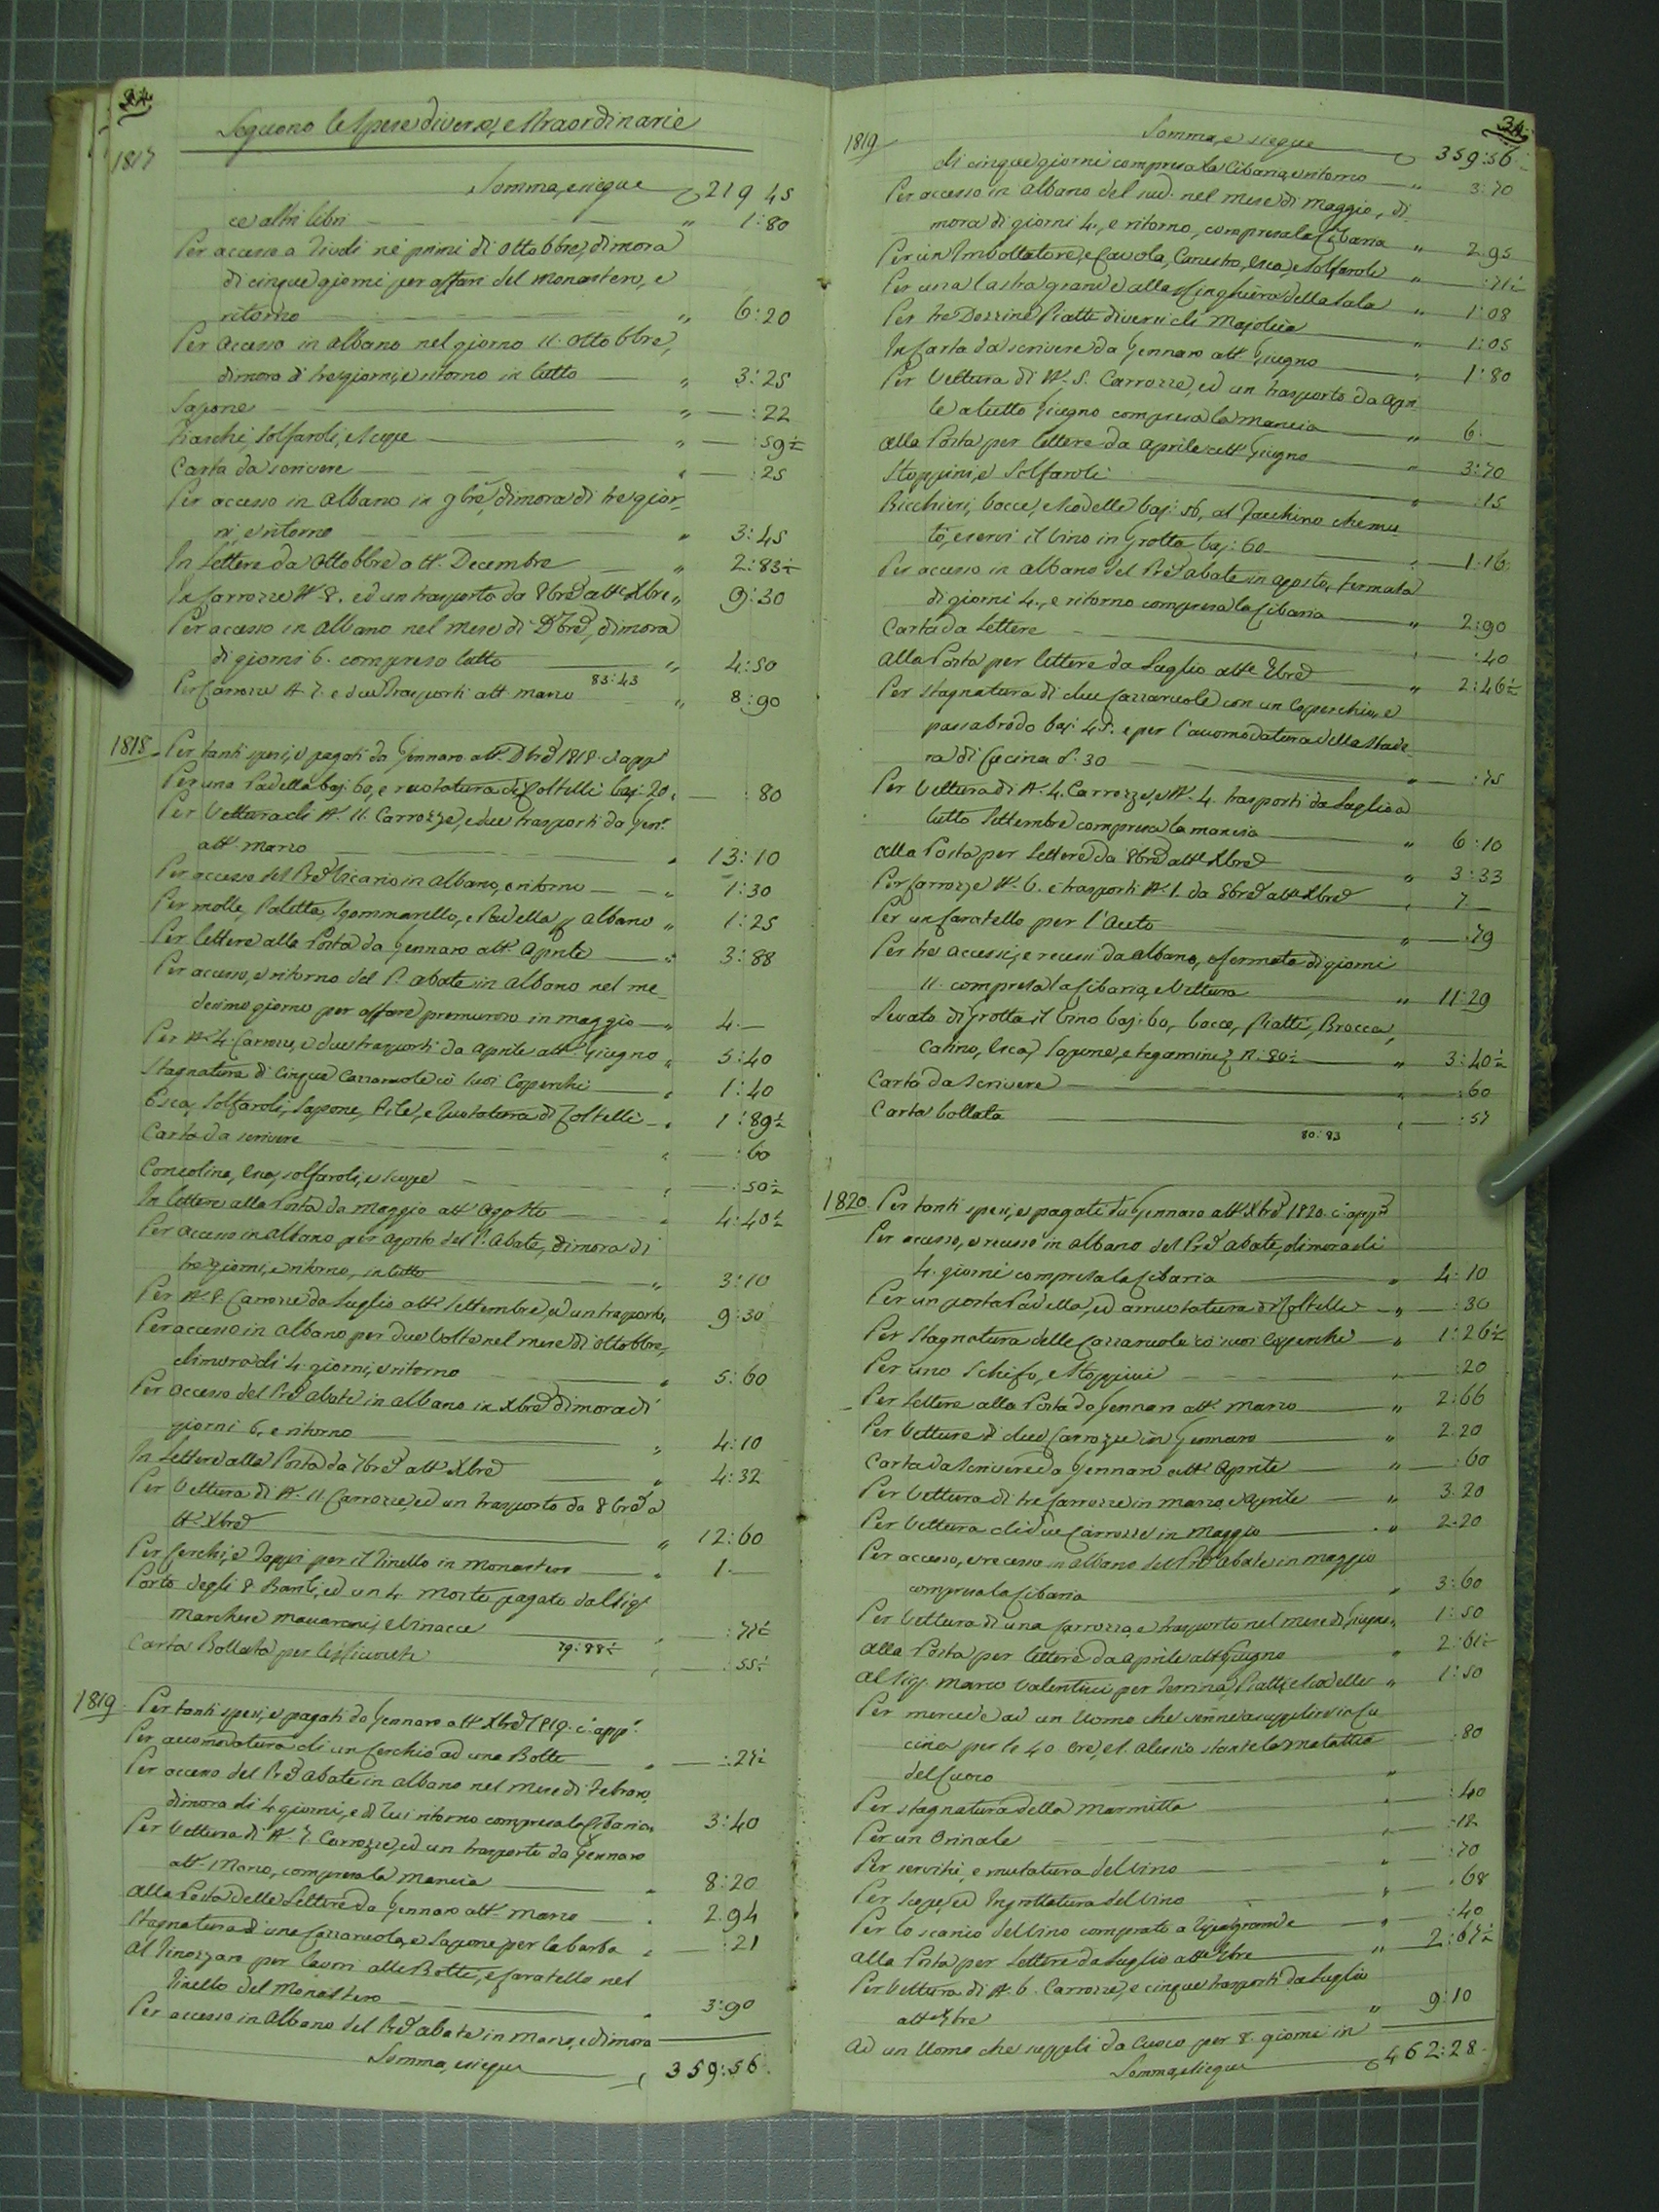 34
Seguono le Spese diverse, e straordinarie
1817
Somma, e siegue 219 45
ce altri libri " 1:80
Per accesso a Tivoli ne primi di ottobbre, dimora
di cinque giorni per affari del Monastero, e
ritorno " 6:20
Per accesso in Albano nel giorno 11. ottobbre,
dimora di tre giorni, e ritorno in tutto " 3:25
Sapone " :22
Fiaschi, Solfaroli, e scope " :59½
Carta da scrivere " :25
Per accesso in Albano in 9bre, dimora di tre gior-
ni, e ritorno " 3:45
In Lettere da Ottobbre a tt. Decembre " 2:83½
In Carrozze N. 8. ed un trasporto da 8bre a tt. Xbre " 9:30
Per accesso in Albano nel mese di Xbre, dimora
di giorni 6. compreso tutto " 4:50
83:43
Per Carrozze N. 7. e due trasporti a tt. marzo " 8:90
1818 Per tanti spesi, e pagati da Gennaro a tt. Xbre 1818. c. app.
Per una Padella baj: 60, e ruotatura di Coltelli baj: 20 " :80
Per Vettura di N. 11. Carrozze, e due trasporti da Genn.
a tt. marzo " 13:10
Per accesso del Pre Vicario in Albano, e ritorno " 1:30
Per molle, Paletta, Sgommarello, e Padella p Albano " 1:25
Per lettere alla Posta da Gennaro a tt. Aprile " 3:88
Per accesso, e ritorno del P. Abate in Albano nel me-
desimo giorno per affare premuroso in maggio " 4.—
Per N. 4. Carrozze, e due trasporti da Aprile a tt. Giugno " 5:40
Stagnatura di Cinque Cazzarole co' suoi Coperchi " 1:40
Esca, Solfaroli, Sapone, Pile, e Ruotatura di Coltelli " 1:89½
Carta da scrivere " :60
Concoline, esca, solfaroli, e scope " :50½
In lettere alla Posta da Maggio a tt. Agosto " 4:40½
Per accesso in Albano per agosto del P. Abate, dimora di
tre giorni, e ritorno, in tutto " 3:10
Per N. 8. Carrozze da Luglio a tt. Settembre, ed un trasporto " 9:30
Per accesso in Albano per due Volte nel mese di ottobbre,
dimora di 4. giorni, e ritorno " 5:60
Per accesso del Pre Abate in Albano in Xbre dimora di
giorni 6. e ritorno " 4:10
In Lettere alla Posta da 7bre a tt. Xbre " 4:32
Per Vettura di N. 11 Carrozze, ed un trasporto da 8bre a
tt. Xbre " 12:60
Per Cerchi, e Tappi per il Tinello in Monastero " 1.—
Porto degli 8. Barili, ed un 4. Mosto pagato dal Sig.
Marchese Maccarani, e Vinacce " :77½
Carta Bollata per 79:88½ " :55½
1819 Per tanti spesi, e pagati da Gennaro a tt. Xbre 1819. c. app.
Per accomodatura di un Cerchio ad una Botte " :27½
Per accesso del Pre Abate in Albano nel mese di Febraro,
dimora di 4 giorni, e di lui ritorno compresa la Cibaria " 3:40
Per Vettura di N. 7. Carrozze, ed un trasporto da Gennaro
a tt. Marzo, compresa la Mancia " 8:20
Alla Posta delle Lettere da Gennaro a tt. Marzo " 2.94
Stagnatura di una Cazzarola, e Sapone per la barba " :21
Al Tinozzaro per lavori alle Botti, e Caratello nel
Tinello del Monastero " 3:90
Per accesso in Albano del Pre Abate in Marzo, e dimora
Somma, e siegue 359:56.
34
1819
Somma, e siegue 359:56
di cinque giorni compresa la Cibaria, e ritorno " 3:70
Per accesso in Albano del sud. nel mese di Maggio, di-
mora di giorni 4., e ritorno, compresa la Cibaria " 2.95
Per un Imbottatore, e Cavola, Canestro, esca, e Solfaroli " :71½
Per una lastra grande alla Ringhiera della Sala " 1:08
Per tre Dozzine Piatti diversi di Majolica " 1:05
In Carta da scrivere da Gennaro a tt. Giugno " 1:80
Per Vettura di N. 5. Carrozze, ed un trasporto da Apri-
le a tutto Giugno compresa la mancia " 6.—
Alla Posta per lettere da Aprile a tt. Giugno " 3:70
Stoppini, e Solfaroli " :15
Bicchieri, bocce, e scodelle baj: 56, al Facchino che mu-
tò, e servì il vino in Grotta baj: 60 " 1:16
Per accesso in Albano del Pre Abate in agosto, fermata
di giorni 4., e ritorno compresa la Cibaria " 2:90
Carta da Lettere " :40
Alla Posta per lettere da Luglio a tt. 7bre " 2:46½
Per stagnatura di due Cazzarole con un Coperchio, e
passabrodo baj: 45. e per l'accomodatura della Stade-
ra di Cucina b: 30 " :75
Per Vettura di N. 4. Carrozze, e N. 4. trasporti da Luglio a
tutto Settembre compresa la mancia " 6:10
Alla Posta per Lettere da 8bre a tt. Xbre " 3:33
Per Carrozze N. 6. e trasporti N. 1. da 8bre a tt. Xbre " 7.—
Per un Caratello per l'Aceto " :79
Per tre accessi, e recessi da Albano, e fermata di giorni
11. compresa la Cibaria, e Vettura " 11:29
Levato di Grotta il Vino baj: 60, bocce, Piatti, Brocca,
Catino, Esca, Sapone, e tegamini 2: 80½ " 3:40½
Carta da Scrivere " :60
Carta bollata " :57
80:83
1820. Per tanti spesi, e pagati da Gennaro a tt. Xbre 1820. c. app.
Per accesso, e recesso in Albano del Pre Abate, dimora di
4. giorni compresa la Cibaria " 4:10
Per un porta Padella, ed arruotatura di Coltelli " :30
Per Stagnatura delle Cazzarole co' suoi Coperchi " 1:26½
Per uno Schifo, e Stoppini " :20
Per Lettere alla Posta da Gennaro a tt. Marzo " 2:66
Per Vettura di due Carrozze in Gennaro " 2.20
Carta da Scrivere da Gennaro a tt. Aprile " :60
Per Vettura di tre Carrozze in marzo, e Aprile " 3.20
Per Vettura di due Carrozze in Maggio " 2.20
Per accesso, e recesso in Albano del Pre Abate in Maggio
compresa la Cibaria " 3:60
Per Vettura di una Carrozza, e trasporto nel mese di Giugno " 1:50
Alla Posta per lettere da Aprile a tt. Giugno " 2:61½
Al Sig. Marco Valentini per Terrina, Piatti, e Scodelle " 1:50
Per mercede ad un Uomo che venne a supplire in Cu-
cina per le 40 ore, e S. Alessio stante la malattia
del Cuoco " :80
Per stagnatura della Marmitta " :40
Per un Orinale " :12
Per servitù, e mutatura del Vino " :70
Per Scope, ed Ingrottatura del Vino " :68
Per lo scarico del Vino comprato a Ripa grande " :40
Alla Posta per Lettere da Luglio a tt. 7bre " 2:67½
Per Vettura di N. 6. Carrozze, e cinque trasporti da Luglio
a tt. 7bre " 9:10
Ad un Uomo che supplì da Cuoco per 8. giorni in
Somma, e siegue 462:28.